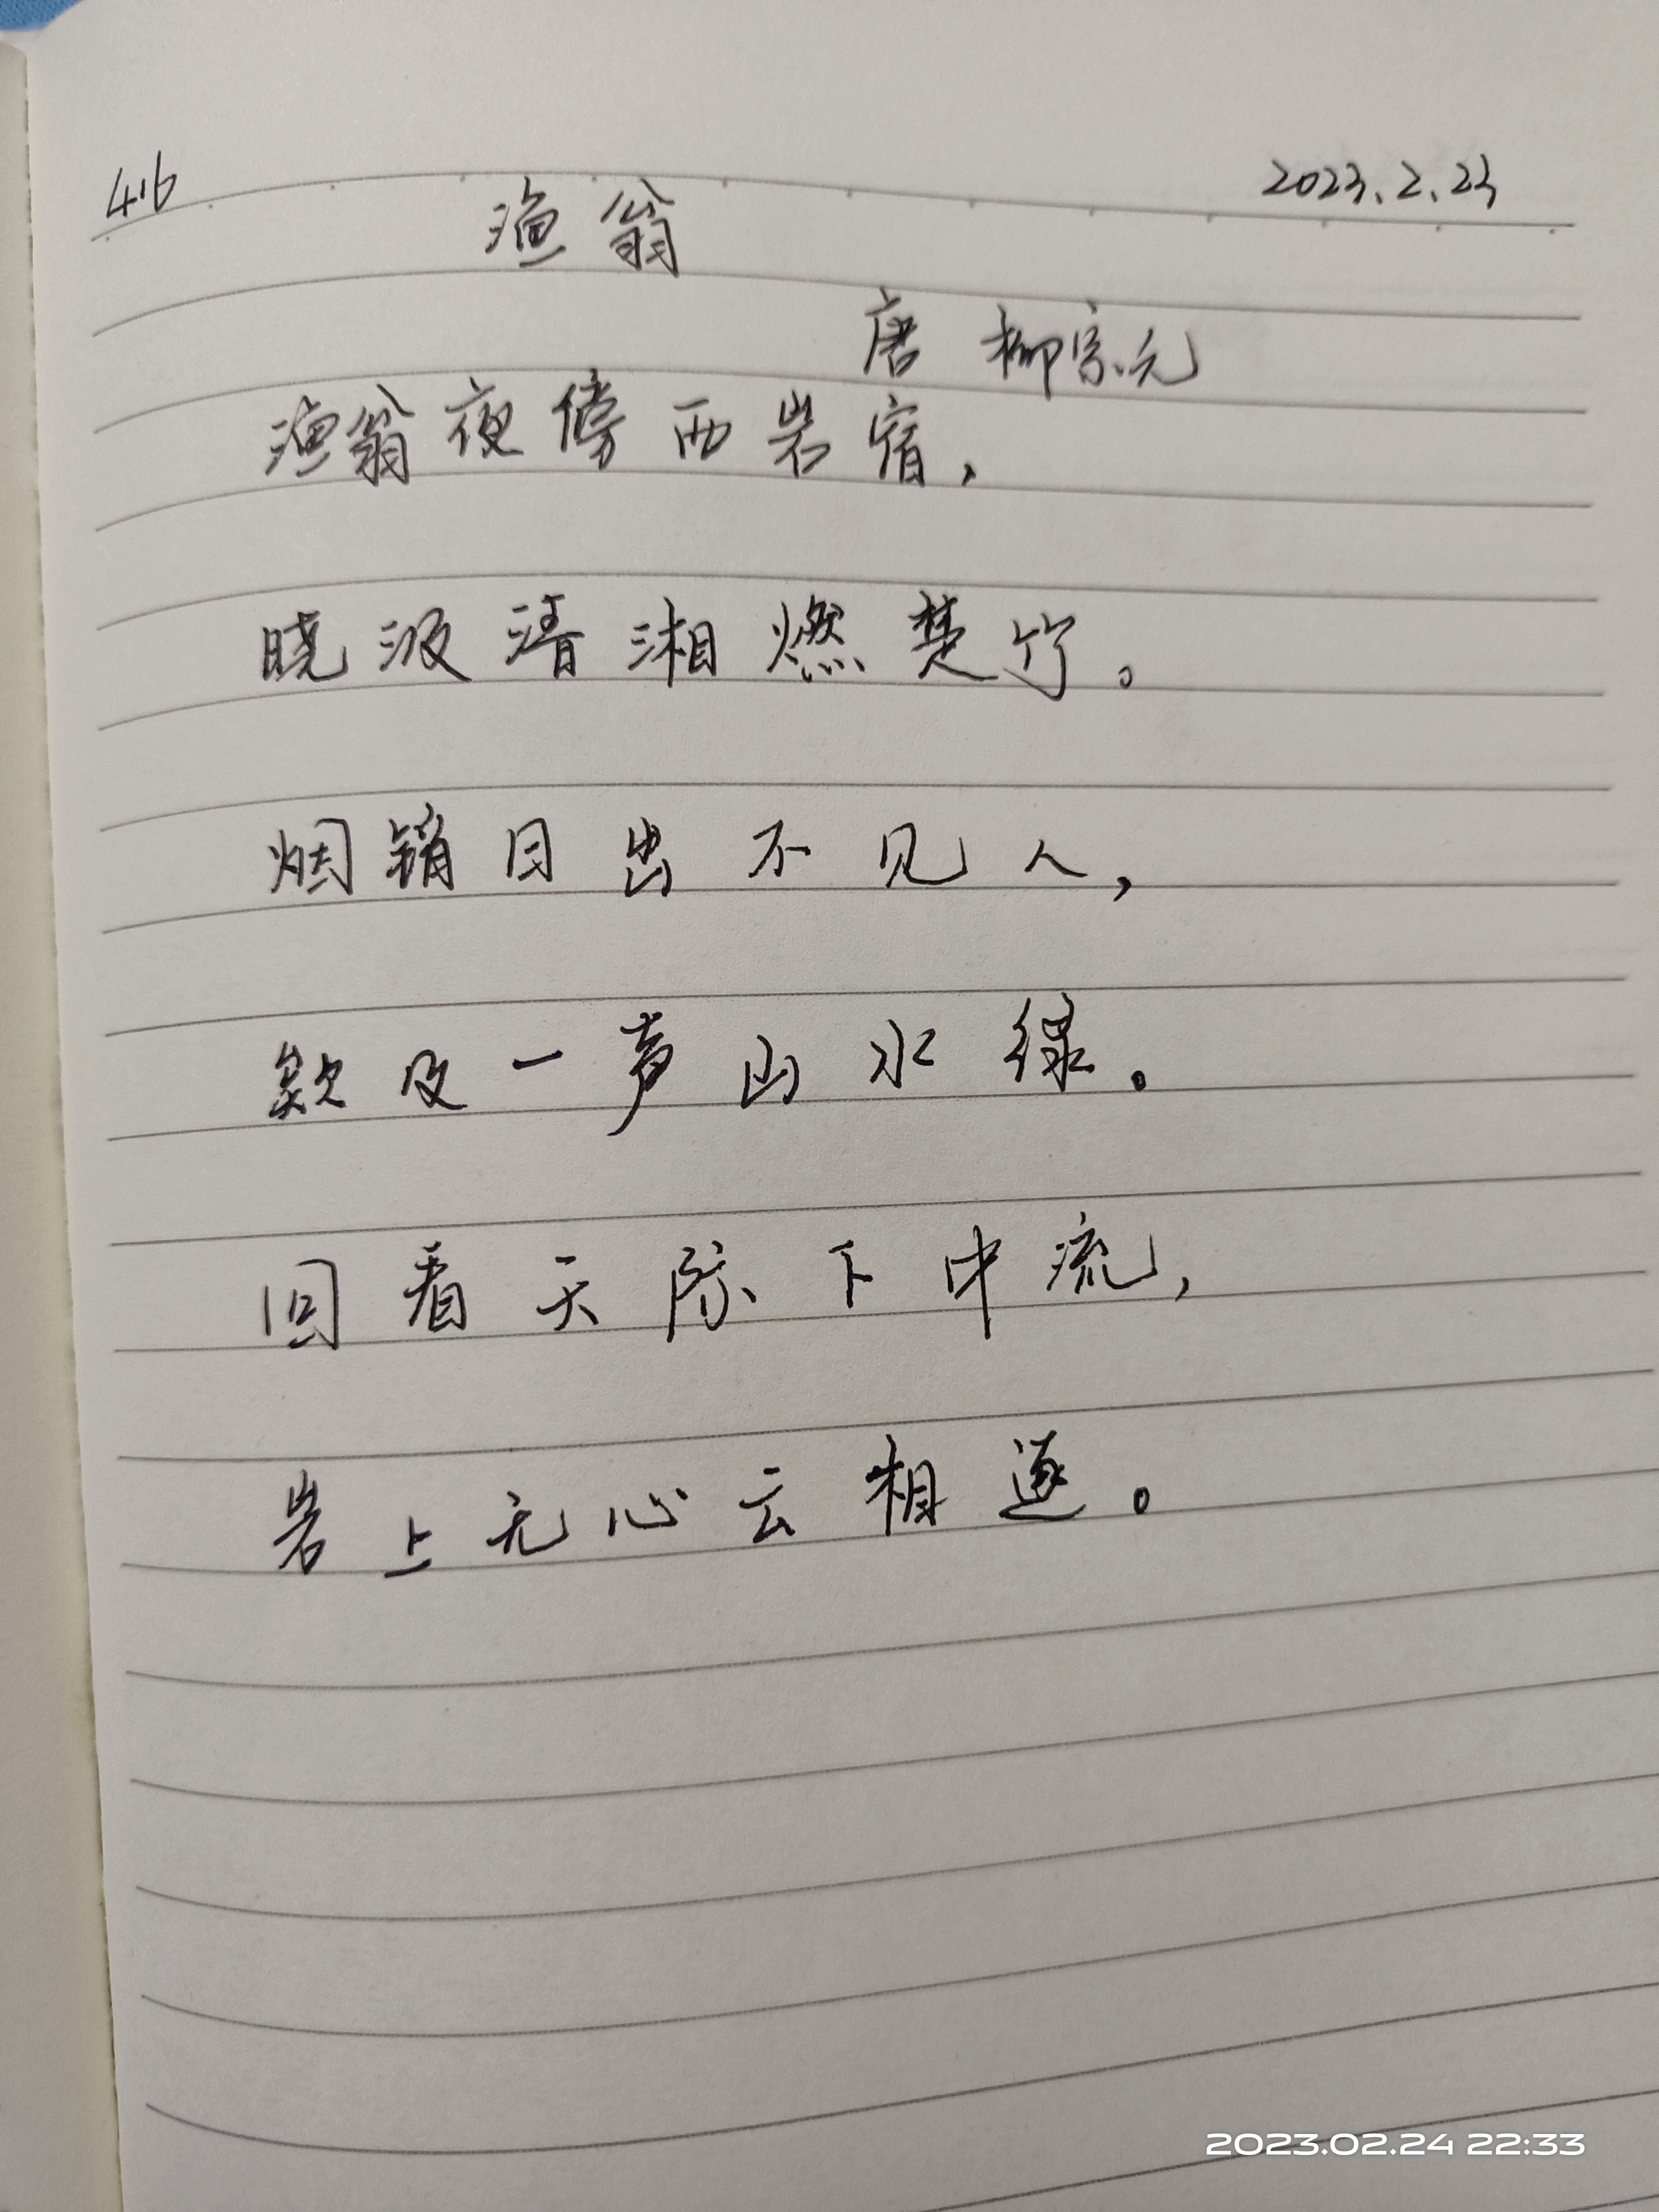 416
2023.2.23
渔翁
唐 柳宗元
渔翁夜傍西岩宿,
晓汲清湘燃楚竹。
烟销日出不见人,
欸及一声山水绿。
回看天际下中流,
岩上无心云相逐。
2023.02.24 22:33